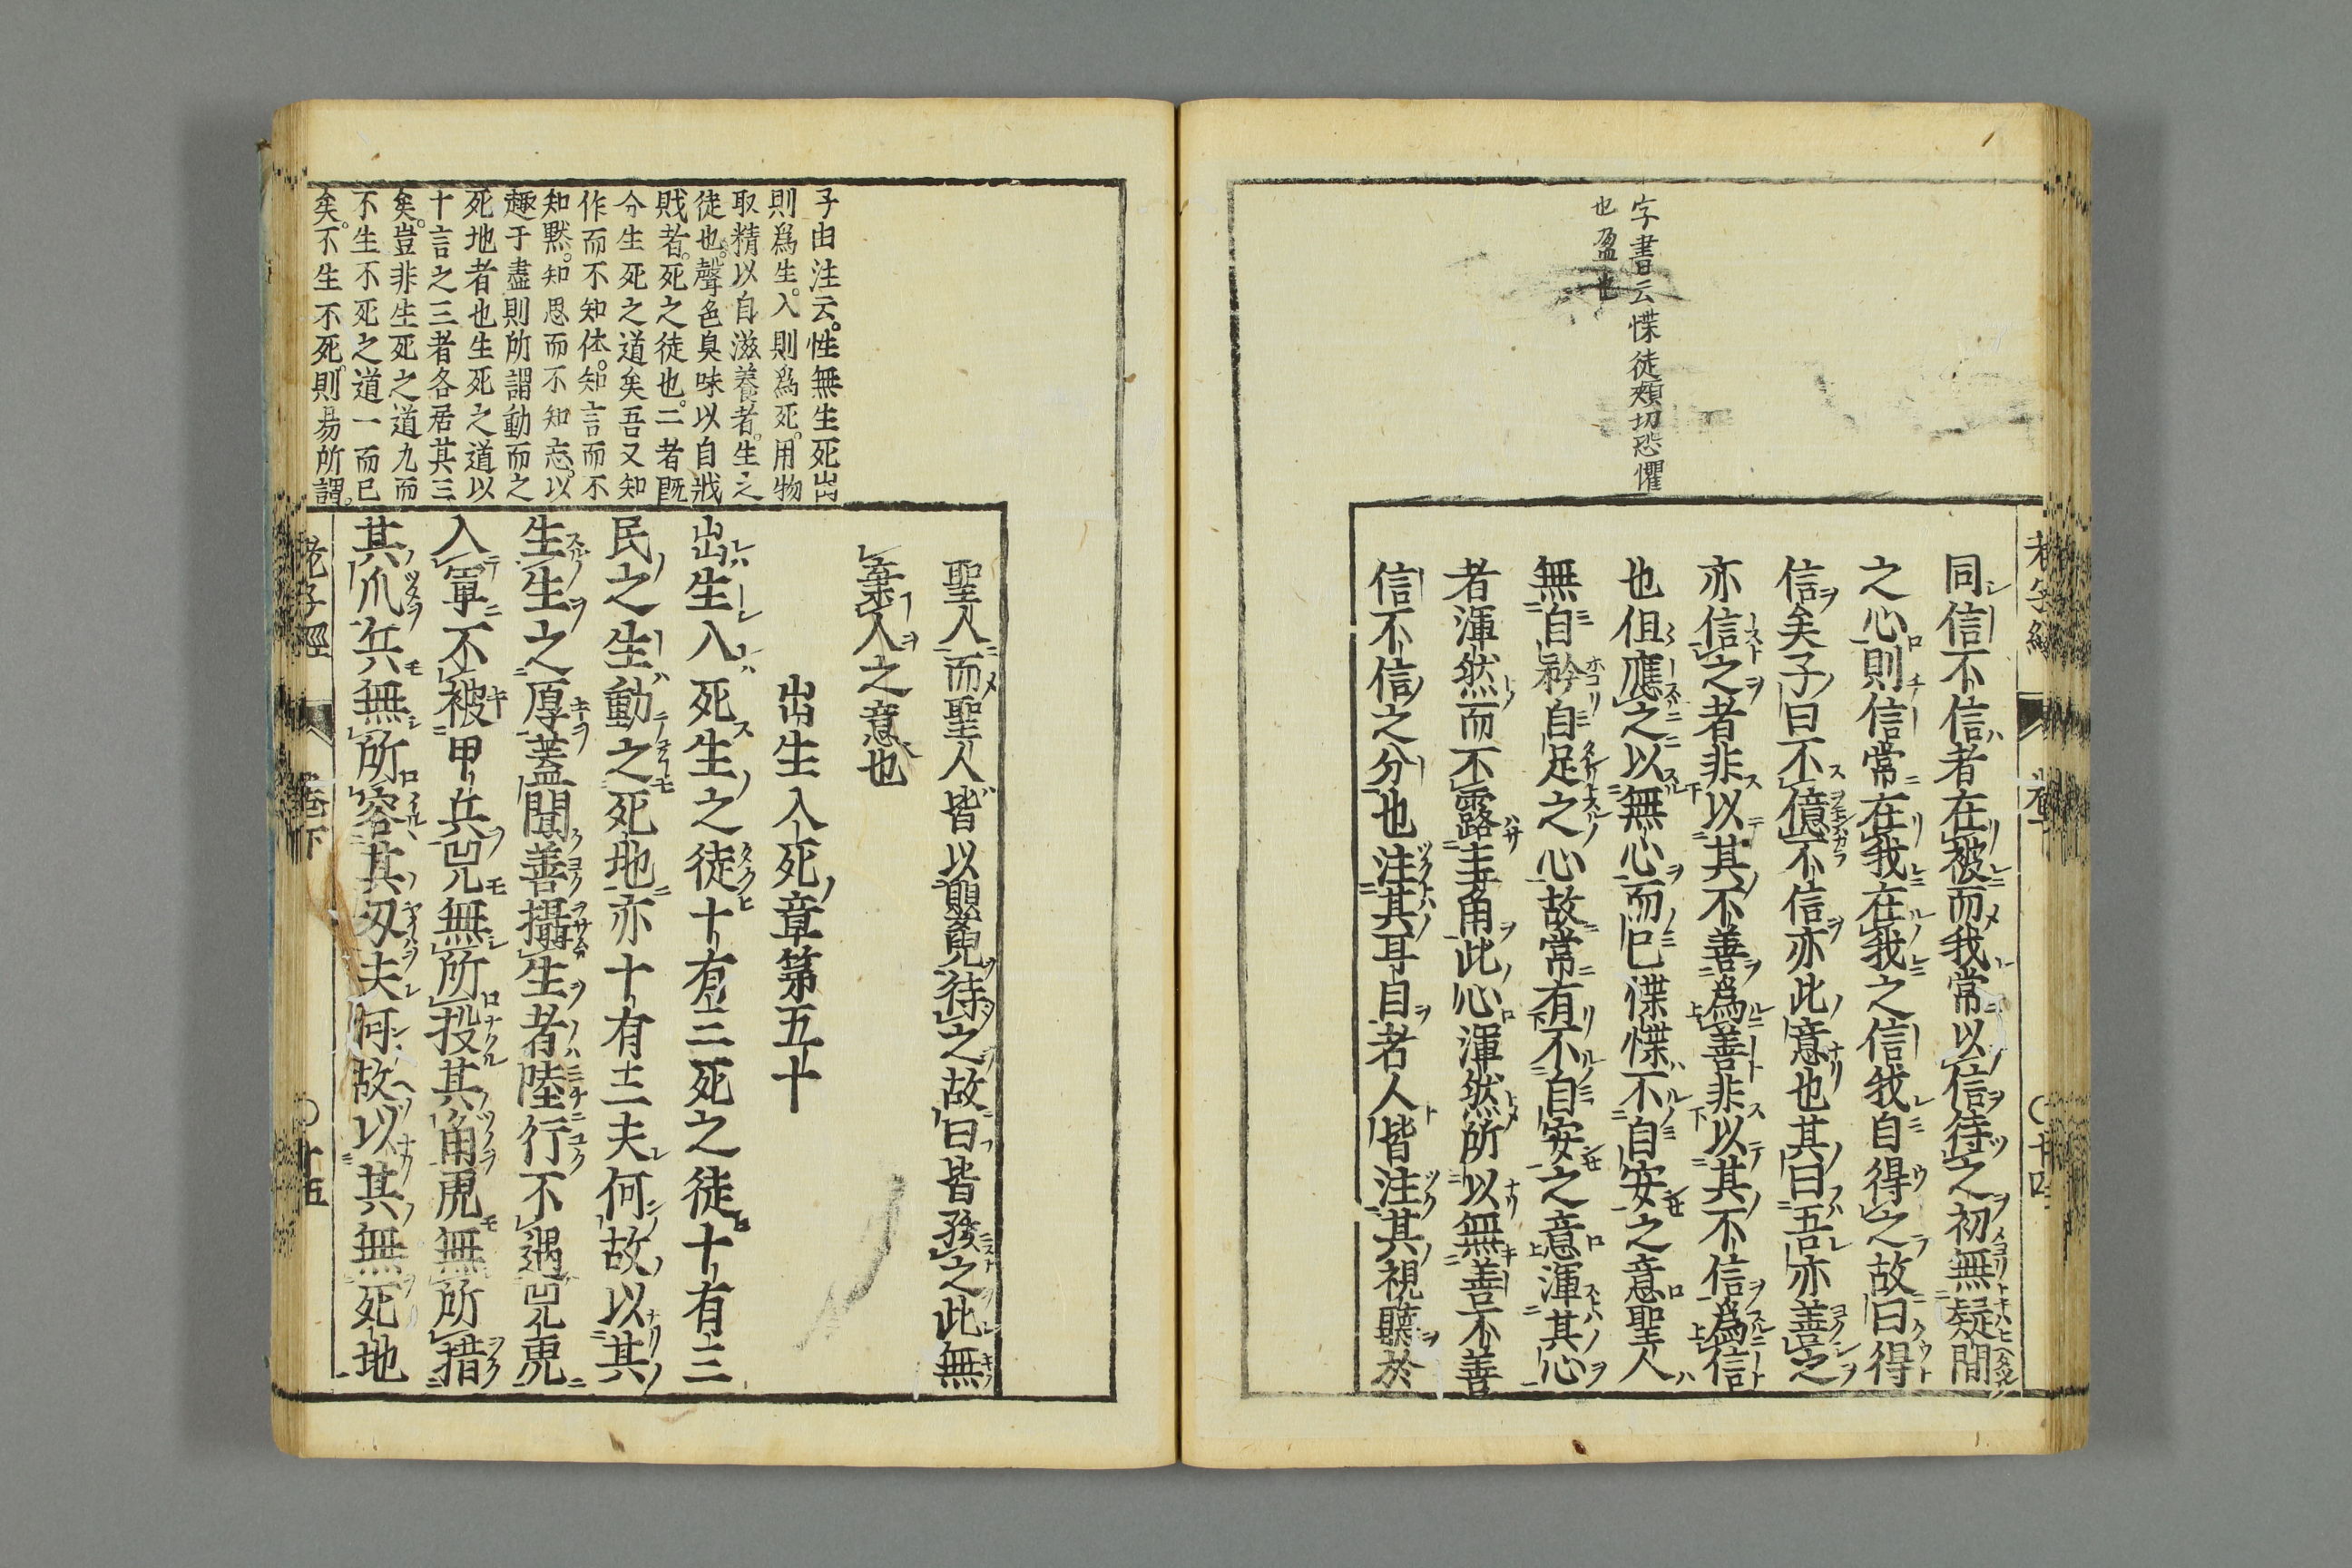 字書云惵徒頰切恐懼
也盈也
同信不信者在彼而我常以信待之初無疑間
之心則信常在我在我之信我自得之故曰得
信矣子曰不億不信亦此意也其曰吾亦善之
亦信之者非以其不善爲善非以其不信爲信
也但應之以無心而已惵惵不自安之意聖人
無自矜自足之心故常有不自安之意渾其心
者渾然而不露圭角此心渾然所以無善不善
信不信之分也注其耳目者人皆注其視聽於
聖人而聖人皆以嬰兒待之故曰皆孩之此無
棄人之意也
子由注云性無生死出
則爲生入則爲死用物
取精以自滋養者生之
徒也聲色臭味以自戕
賊者死之徒也二者既
分生死之道矣吾又知
作而不知休知言而不
知默知思而不知忘以
趣于盡則所謂動而之
死地者也生死之道以
十言之三者各居其三
矣豈非生死之道九而
不生不死之道一而已
矣不生不死則易所謂
出生入死章第五十
出生入死生之徒十有三死之徒十有三
民之生動之死地亦十有三夫何故以其
生生之厚蓋聞善攝生者陸行不遇兕虎
入軍不被甲兵兕無所投其角虎無所措
其爪兵無所容其刃夫何故以其無死地
老子經 卷下 十五